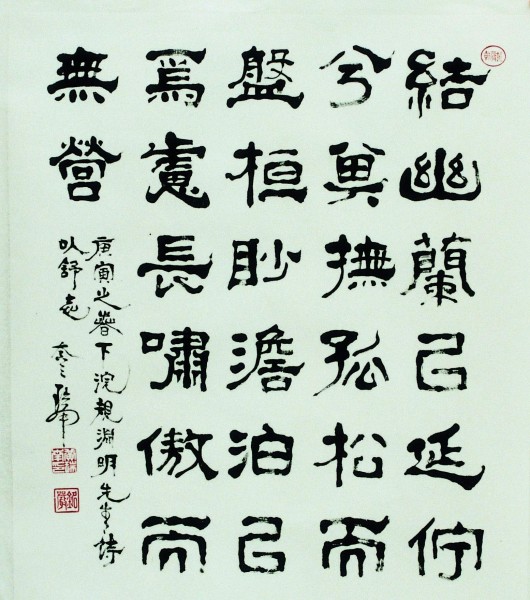 結幽蘭已延佇
兮冀撫孤松而
盤桓眇澹泊已
焉慮長嘯傲而
無營
庚寅之春下浣觀淵明先生詩
以舒志